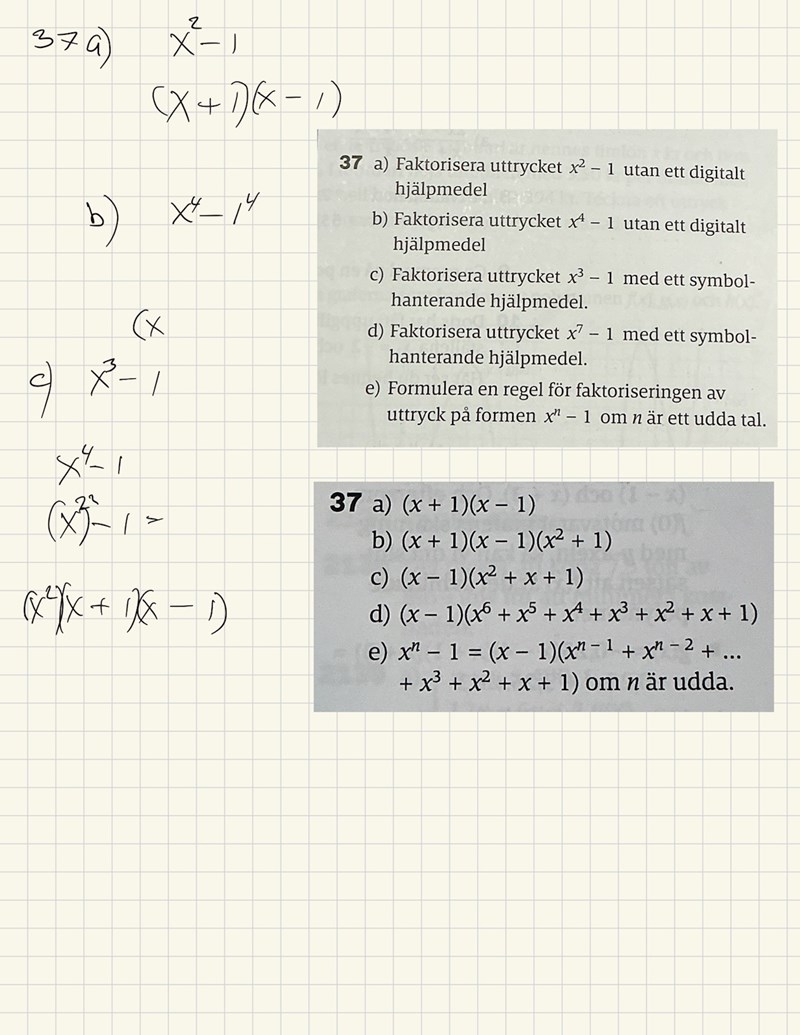 37 a) x² - 1
(x + 1)(x - 1)
b) x⁴ - 1⁴
(x
c) x³ - 1
x⁴ - 1
(x²)² - 1 =
(x²)(x + 1)(x - 1)
37 a) Faktorisera uttrycket x² − 1 utan ett digitalt
hjälpmedel
b) Faktorisera uttrycket x⁴ − 1 utan ett digitalt
hjälpmedel
c) Faktorisera uttrycket x³ − 1 med ett symbol-
hanterande hjälpmedel.
d) Faktorisera uttrycket x⁷ − 1 med ett symbol-
hanterande hjälpmedel.
e) Formulera en regel för faktoriseringen av
uttryck på formen xⁿ − 1 om n är ett udda tal.
37 a) (x + 1)(x − 1)
b) (x + 1)(x − 1)(x² + 1)
c) (x − 1)(x² + x + 1)
d) (x − 1)(x⁶ + x⁵ + x⁴ + x³ + x² + x + 1)
e) xⁿ − 1 = (x − 1)(xⁿ⁻¹ + xⁿ⁻² + ...
+ x³ + x² + x + 1) om n är udda.